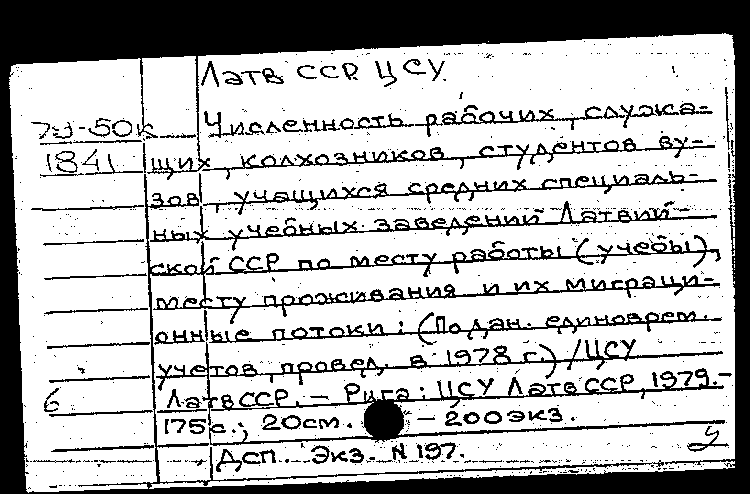 Латв ССР. ЦСУ.
Численность рабочих, служа-
1841 щих, колхозников, студентов ву-
зов, учащихся средних специаль-
ных учебных заведений Латвий-
ской ССР по месту работы (учебы),
месту проживания и их миграци-
онные потоки: (По дан. единоврем.
учетов, провед. в 1978 г.) / ЦСУ
6 Латв ССР. – Рига: ЦСУ Латв ССР, 1979.–
175 с.; 20 см. – 200 экз.
ДСП. Экз. N 197.